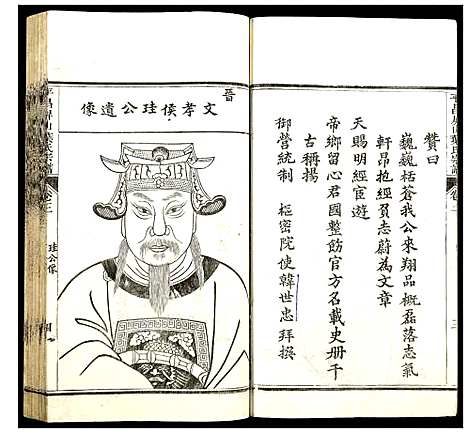 贊曰
巍巍栝蒼我公來翔品概磊落志氣
軒昂抱經負志蔚為文章
天賜明經宦遊
帝鄉留心君國整飭官方名載史冊千
古稱揚
御營統制 樞密院使韓世忠拜撰
晉
文孝侯珪公遺像
珪公像